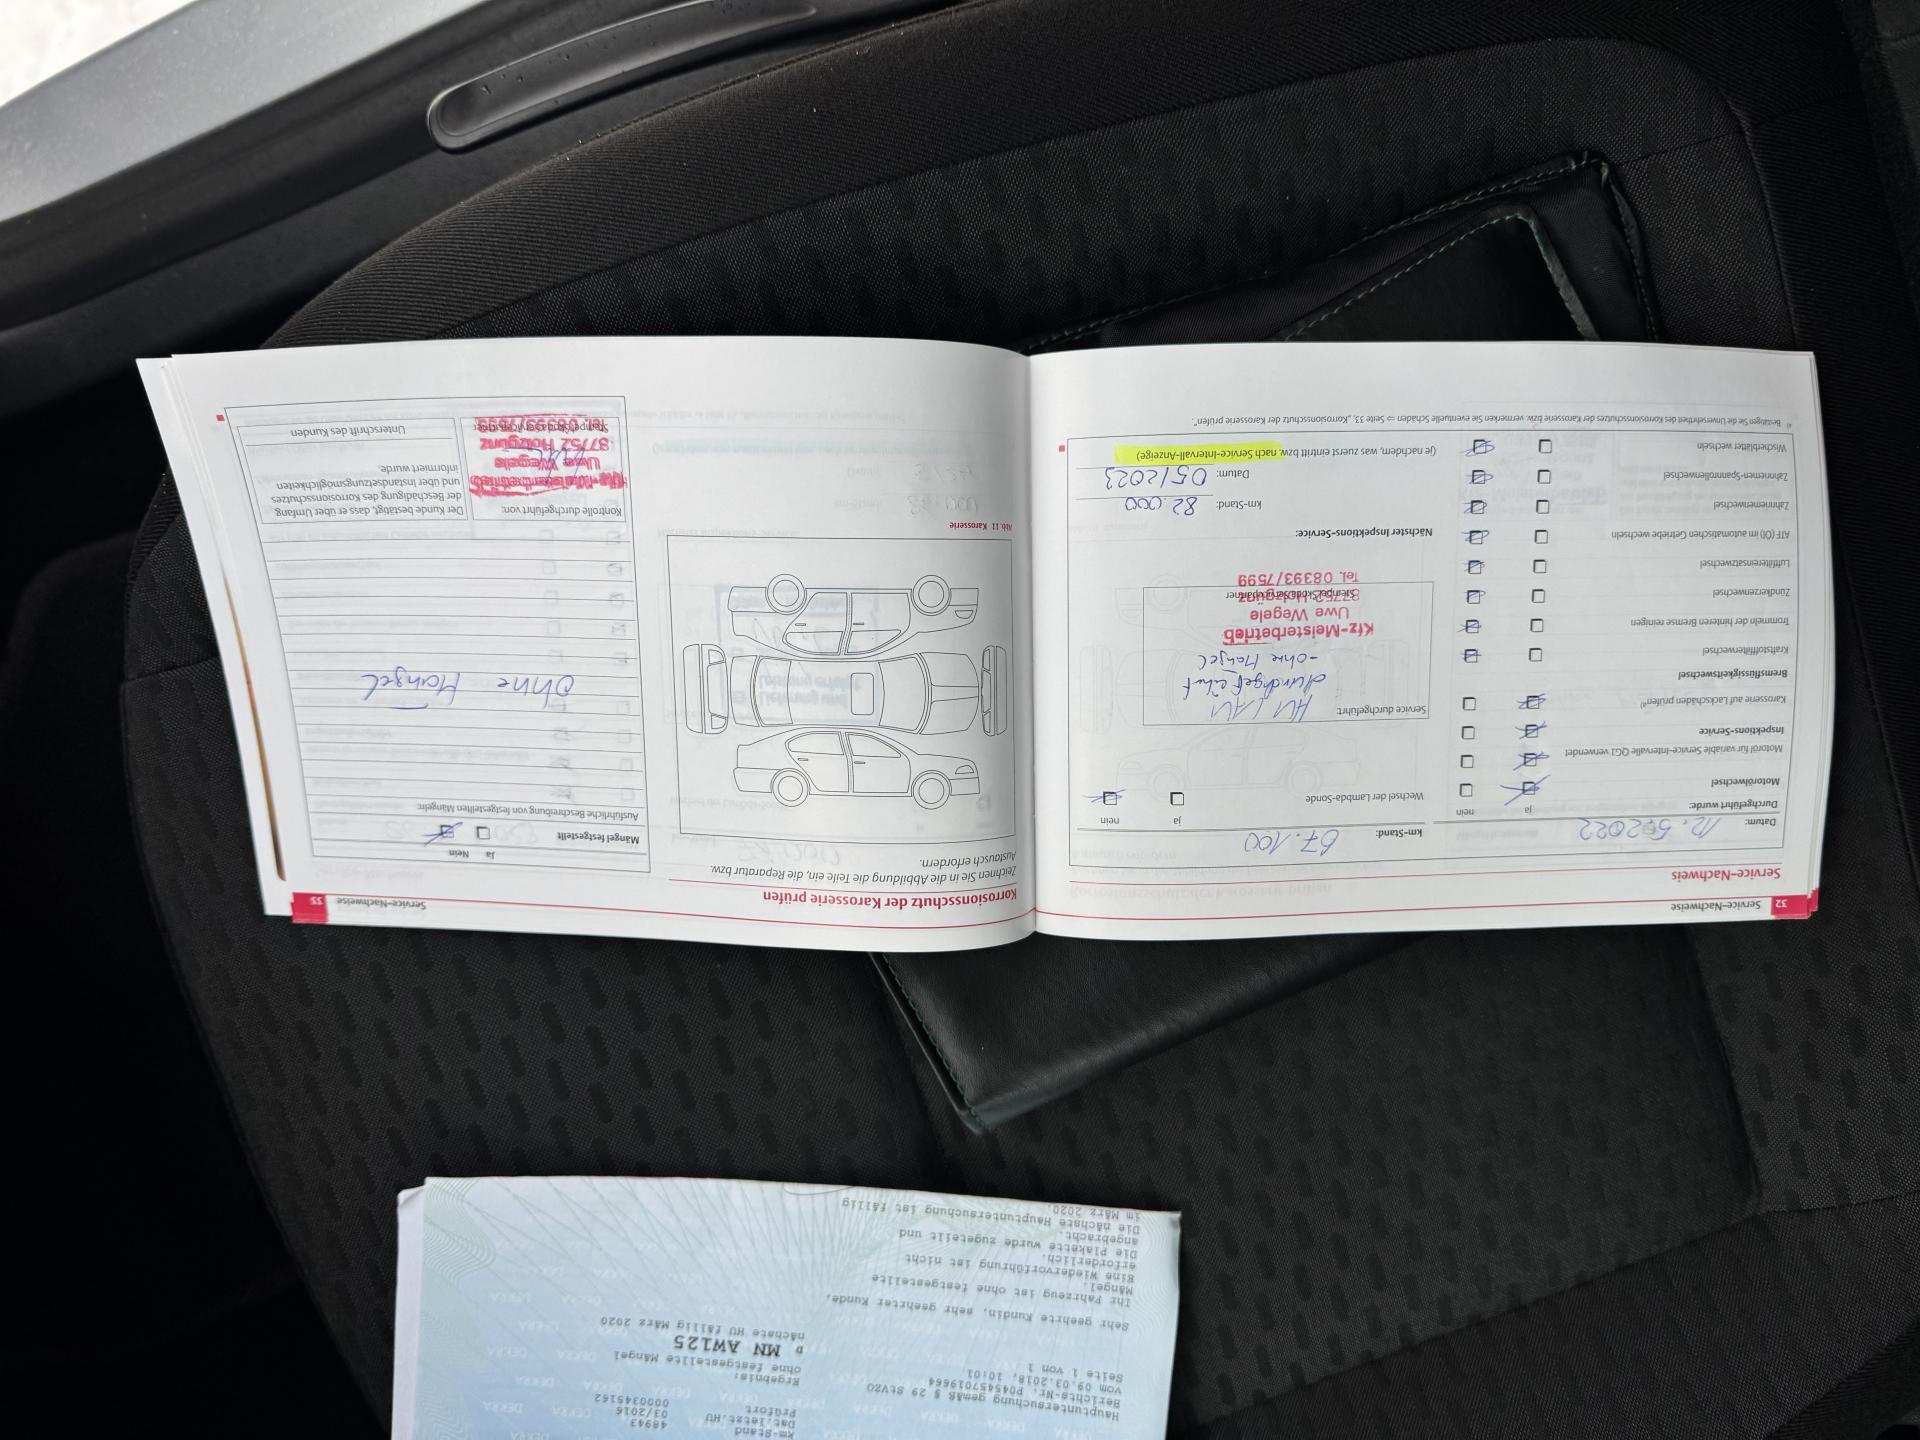 32
Service-Nachweise
Service-Nachweis
Datum: 12. 5. 2022
km-Stand: 67.100
Durchgeführt wurde:
ja
nein
Motorölwechsel
Motoröl für variable Service-Intervalle QG1 verwendet
Inspektions-Service
Karosserie auf Lackschäden prüfen
Bremsflüssigkeitswechsel
Kraftstofffilterwechsel
Trommeln der hinteren Bremse reinigen
Zündkerzenwechsel
Luftfiltereinsatzwechsel
ATF (Öl) im automatischen Getriebe wechseln
Zahnriemenwechsel
Zahnriemen-Spannrollenwechsel
Wischerblätter wechseln
ja
nein
Wechsel der Lambda-Sonde
Service durchgeführt:
HU / AU
durchgeführt
- ohne Mängel
Kfz-Meisterbetrieb
Uwe Wegele
87752 Holzgünz
Tel. 08393/7599
Stempel Škoda Servicepartner
Nächster Inspektions-Service:
km-Stand: 82.000
Datum: 05/2023
(je nachdem, was zuerst eintritt bzw. nach Service-Intervall-Anzeige)
Bestätigen Sie die Unversehrtheit des Korrosionsschutzes der Karosserie bzw. vermerken Sie eventuelle Schäden ⇒ Seite 33, „Korrosionsschutz der Karosserie prüfen“.
Service-Nachweise
Korrosionsschutz der Karosserie prüfen
Zeichnen Sie in die Abbildung die Teile ein, die Reparatur bzw.
Austausch erfordern.
Abb 11 Karosserie
Ja
Nein
Mängel festgestellt
Ausführliche Beschreibung von festgestellten Mängeln:
ohne Mängel
Kontrolle durchgeführt von:
Kfz-Meisterbetrieb
Uwe Wegele
87752 Holzgünz
Tel. 08393/7599
Stempel Škoda Servicepartner
Der Kunde bestätigt, dass er über Umfang
der Beschädigung des Korrosionsschutzes
und über Instandsetzungsmöglichkeiten
informiert wurde.
Unterschrift des Kunden
km-Stand 48943
Dat.letzt.HU 03/2016
Prüfort 0000345162
Ergebnis:
ohne festgestellte Mängel
D MN AW125
nächste HU fällig März 2020
Hauptuntersuchung gemäß § 29 StVZO
Berichts-Nr. P045457019664
vom 09.03.2018, 10:01
Seite 1 von 1
Sehr geehrte Kundin, sehr geehrter Kunde,
Ihr Fahrzeug ist ohne festgestellte
Mängel.
Eine Wiedervorführung ist nicht
erforderlich.
Die Plakette wurde zugeteilt und
angebracht.
Die nächste Hauptuntersuchung ist fällig
im März 2020.